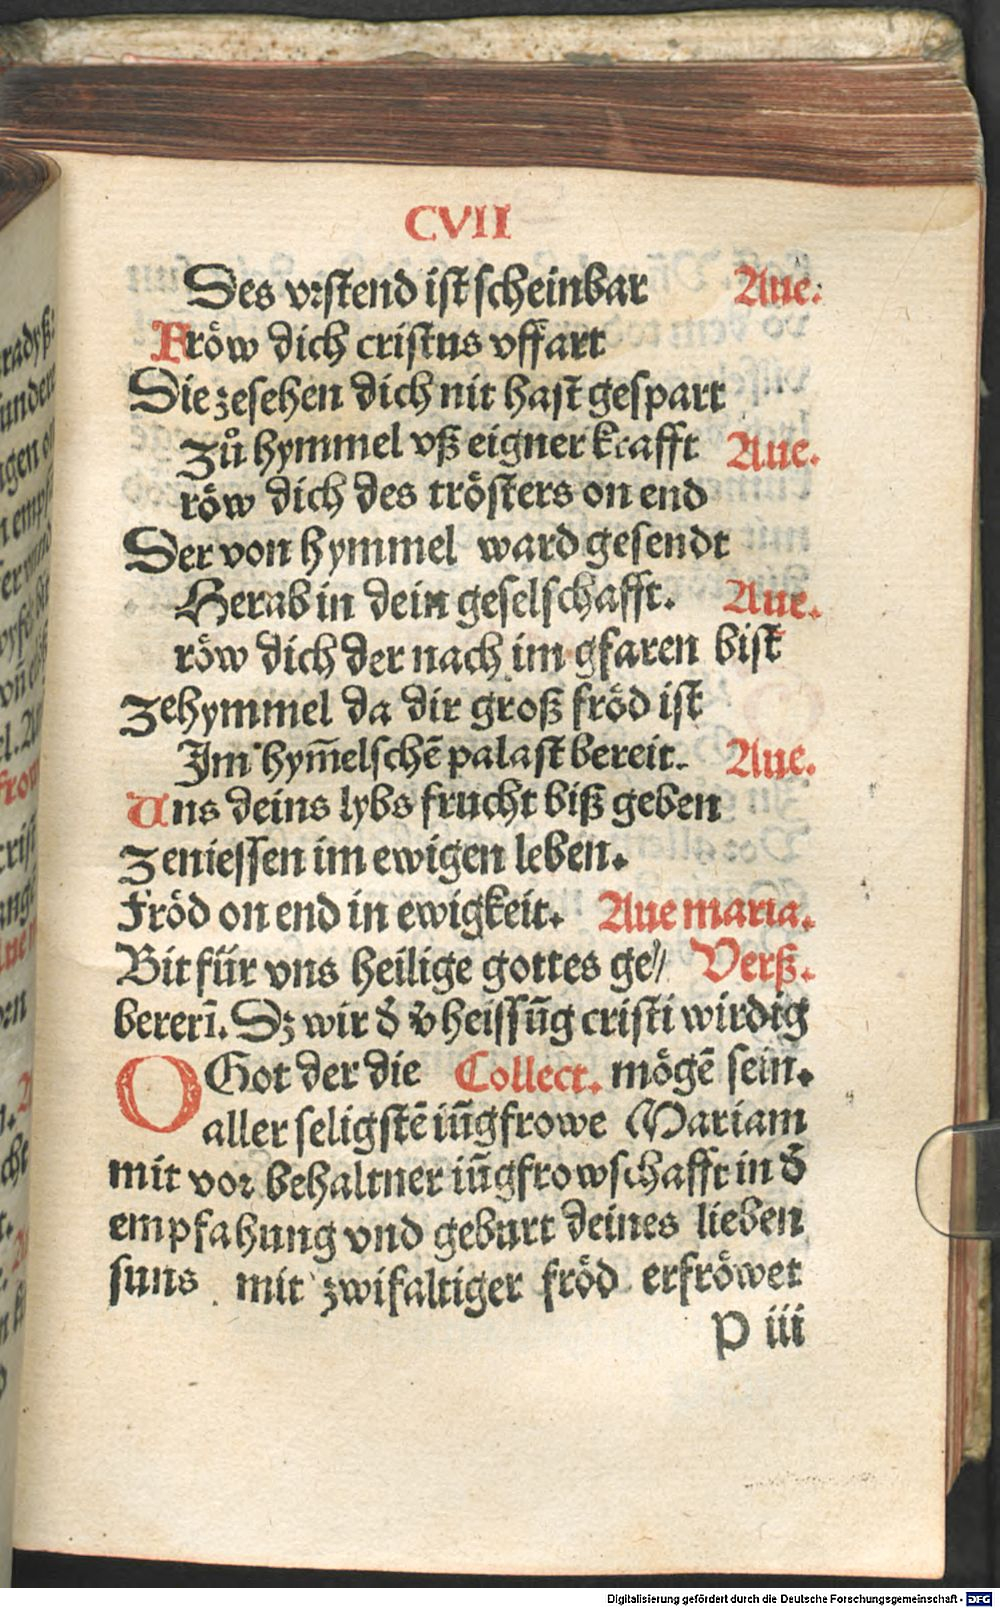 CVII
Des vrstend ist scheinbar Aue.
Fröw dich cristus vffart
Die zesehen dich nit hast gespart
Zů hymmel vß eigner krafft Aue.
röw dich des trösters on end
Der von hymmel ward gesendt
Herab in dein geselschafft. Aue.
röw dich der nach im gfaren bist
zehymmel da dir groß fröd ist
Im hym̄elschē palast bereit. Aue.
Uns deins lybs frucht biß geben
zeniessen im ewigen leben.
Fröd on end in ewigkeit. Aue maria.
Bit für vns heilige gottes ge// Verß.
bererī. Dz wir d̄ v̄heissūg cristi wirdig
O Got der die Collect. mögē sein.
aller seligstē iūgfrowe Mariam
mit vor behaltner iūgfrowschafft in d̄
empfahung vnd geburt deines lieben
suns mit zwifaltiger fröd erfröwet
P iii
radyß:
frow
Digitalisierung gefördert durch die Deutsche Forschungsgemeinschaft - DFG